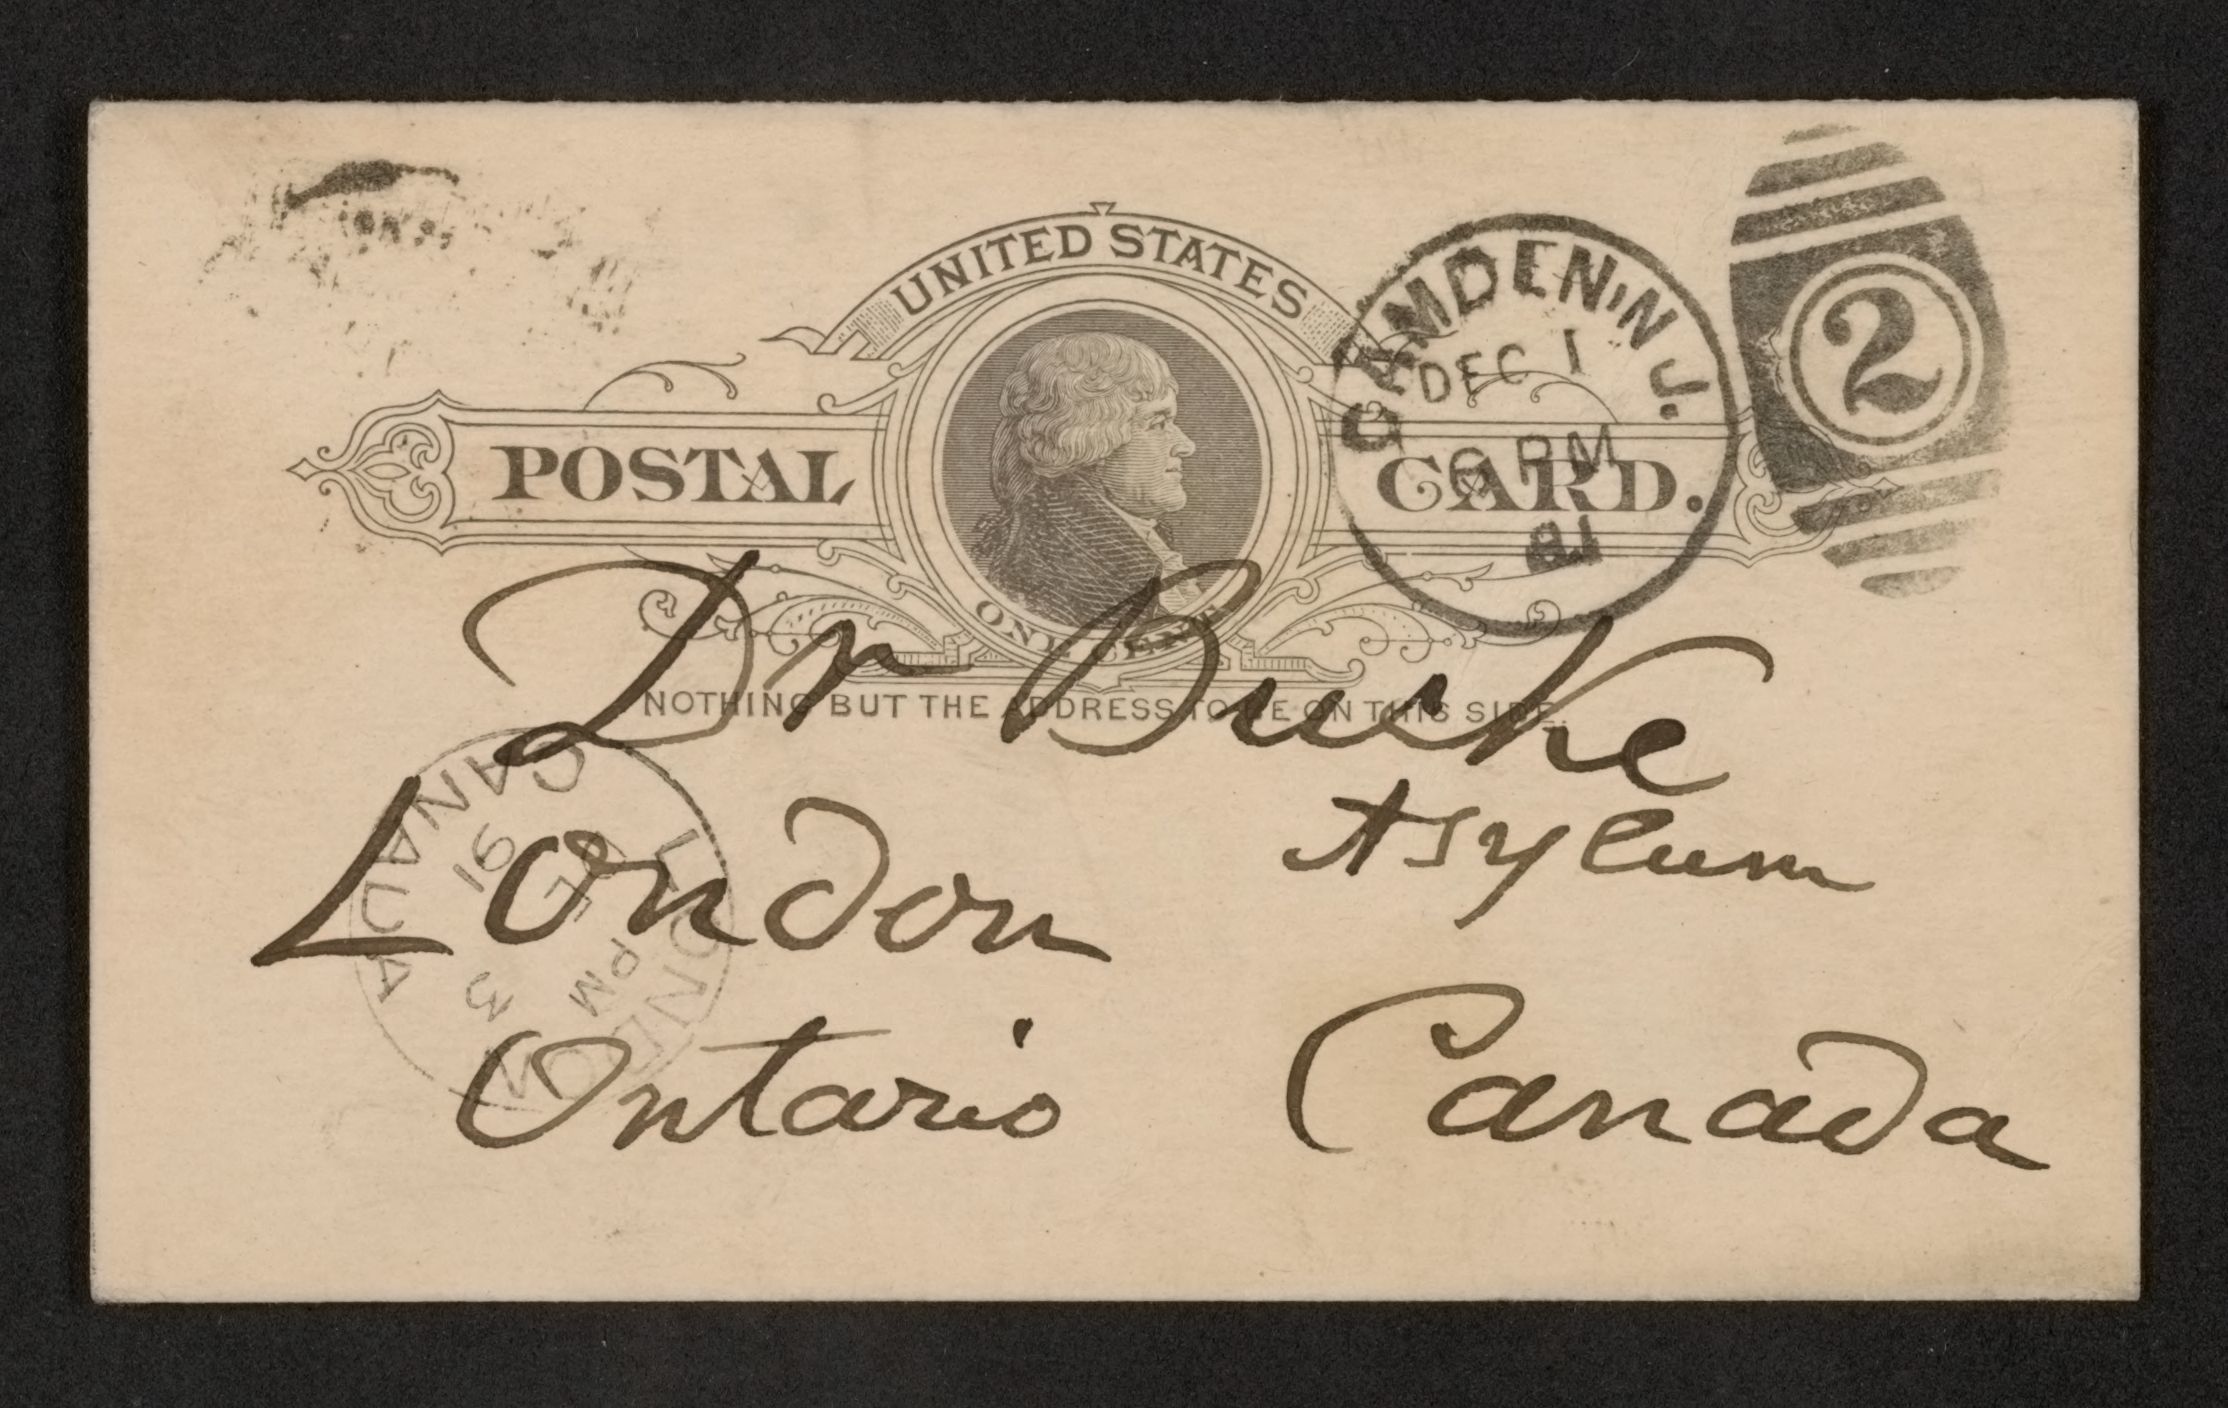 UNITED STATES
POSTAL CARD.
ONE CENT
NOTHING BUT THE ADDRESS TO BE ON THIS SIDE.
CAMDEN, N.J.
DEC 1
6 PM
91
2
Dr Bucke
Asylum
London
Ontario Canada
LONDON
PM
DE 3
91
CANADA